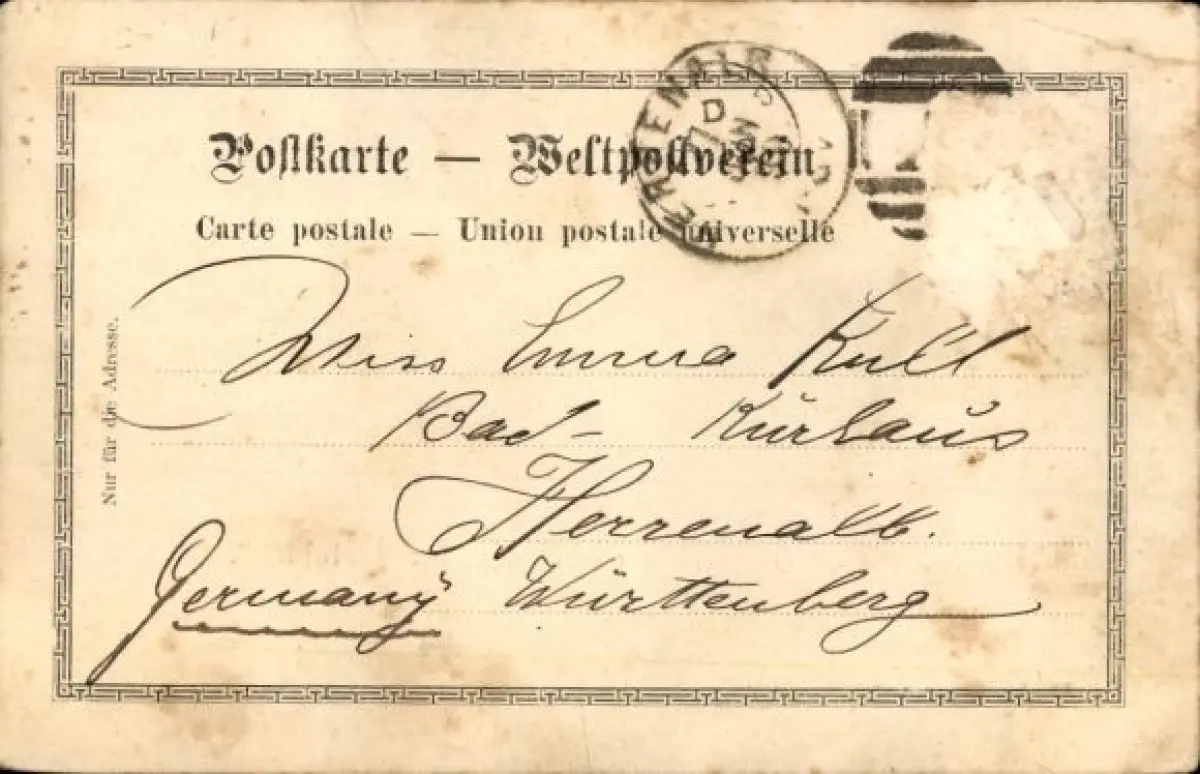 Postkarte — Weltpostverein
Carte postale — Union postale universelle
D
Nur für die Adresse.
Miss Emma Kull
Bad- Kürhaus
Herrenalb.
Germany Württenberg